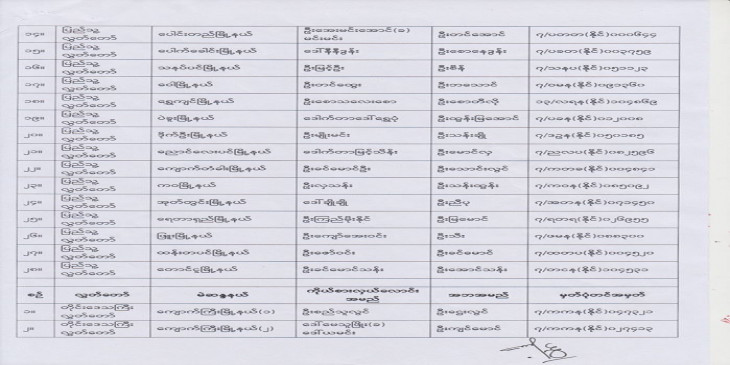 ၁၄။ ပြည်သူ့ ပေါင်းတည်မြို့နယ် ဦးအေးမင်းအောင်(ခ) ဦးတင်အောင် ၇/ပတတ(နိုင်)၀၀၀၆၄၄
လွှတ်တော် မင်းမင်း
၁၅။ ပြည်သူ့ ပေါက်ခေါင်းမြို့နယ် ဒေါ်နီနီညွန်း ဦးစောနေညွန်း ၇/ပခတ(နိုင်)၀၀၃၇၅၉
လွှတ်တော်
၁၆။ ပြည်သူ့ သနပ်ပင်မြို့နယ် ဦးမြင့်ဦး ဦးစိန် ၇/သနပ(နိုင်)၀၅၁၁၂၃
လွှတ်တော်
၁၇။ ပြည်သူ့ ဝေါမြို့နယ် ဦးတင်ထွေး ဦးတသောင် ၇/ဝမန(နိုင်)၀၉၁၃၆၀
လွှတ်တော်
၁၈။ ပြည်သူ့ ရွှေကျင်မြို့နယ် ဦးစောသလေးစော ဦးစောတီလို ၁၃/လရန(နိုင်)၀၀၄၈၆၉
လွှတ်တော်
၁၉။ ပြည်သူ့ ပဲခူးမြို့နယ် ဒေါက်တာဒေါ်ရွှေပုံ ဦးထွန်းမြအောင် ၇/ပခန(နိုင်)၀၁၂၀၀၈
လွှတ်တော်
၂၀။ ပြည်သူ့ ဒိုက်ဦးမြို့နယ် ဦးမျိုးမင်း ဦးသန်းချို ၇/ဒဥန(နိုင်)၀၅၀၁၈၅
လွှတ်တော်
၂၁။ ပြည်သူ့ ညောင်လေးပင်မြို့နယ် ဒေါက်တာမြင့်သိန်း ဦးမောင်လှ ၇/ညလပ(နိုင်)၀၈၂၅၉၆
လွှတ်တော်
၂၂။ ပြည်သူ့ ကျောက်တံခါးမြို့နယ် ဦးခင်မောင်ဦး ဦးသောင်းလွင် ၇/ကတခ(နိုင်)၀၀၄၈၄၁
လွှတ်တော်
၂၃။ ပြည်သူ့ ကဝမြို့နယ် ဦးလှသန်း ဦးသန်းထွန်း ၇/ကဝန(နိုင်)၀၈၅၀၉၂
လွှတ်တော်
၂၄။ ပြည်သူ့ အုတ်တွင်းမြို့နယ် ဒေါ်ချိုချို ဦးညီပု ၇/အတန(နိုင်)၀၇၁၄၅၀
လွှတ်တော်
၂၅။ ပြည်သူ့ ရေတာရှည်မြို့နယ် ဦးကြည်မိုးနိုင် ဦးမြမောင် ၇/ရတရ(နိုင်)၁၂၆၉၅၅
လွှတ်တော်
၂၆။ ပြည်သူ့ ဖြူးမြို့နယ် ဦးကျော်အေးဝင်း ဦးသီး ၇/ဖမန(နိုင်)၀၈၈၃၀၀
လွှတ်တော်
၂၇။ ပြည်သူ့ ထန်းတပင်မြို့နယ် ဦးဇော်ဝင်း ဦးခင်မောင် ၇/ထတပ(နိုင်)၀၀၄၅၂၀
လွှတ်တော်
၂၈။ ပြည်သူ့ တောင်ငူမြို့နယ် ဦးခင်မောင်သန်း ဦးအောင်သန်း ၇/တငန(နိုင်)၁၀၄၅၃၁
လွှတ်တော်
စဉ် လွှတ်တော် မဲဆန္ဒနယ် ကိုယ်စားလှယ်လောင်း အဘအမည် မှတ်ပုံတင်အမှတ်
အမည်
၁။ တိုင်းဒေသကြီး ကျောက်ကြီးမြို့နယ်(၁) ဦးစည်သူလွင် ဦးဌေးလွင် ၇/ကကန(နိုင်)၀၄၇၃၂၁
လွှတ်တော်
၂။ တိုင်းဒေသကြီး ကျောက်ကြီးမြို့နယ်(၂) ဒေါ်မေသူဖြိုး(ခ) ဦးကျင်မောင် ၇/ကကန(နိုင်)၀၂၇၄၁၃
လွှတ်တော် ဒေါ်ယမင်း